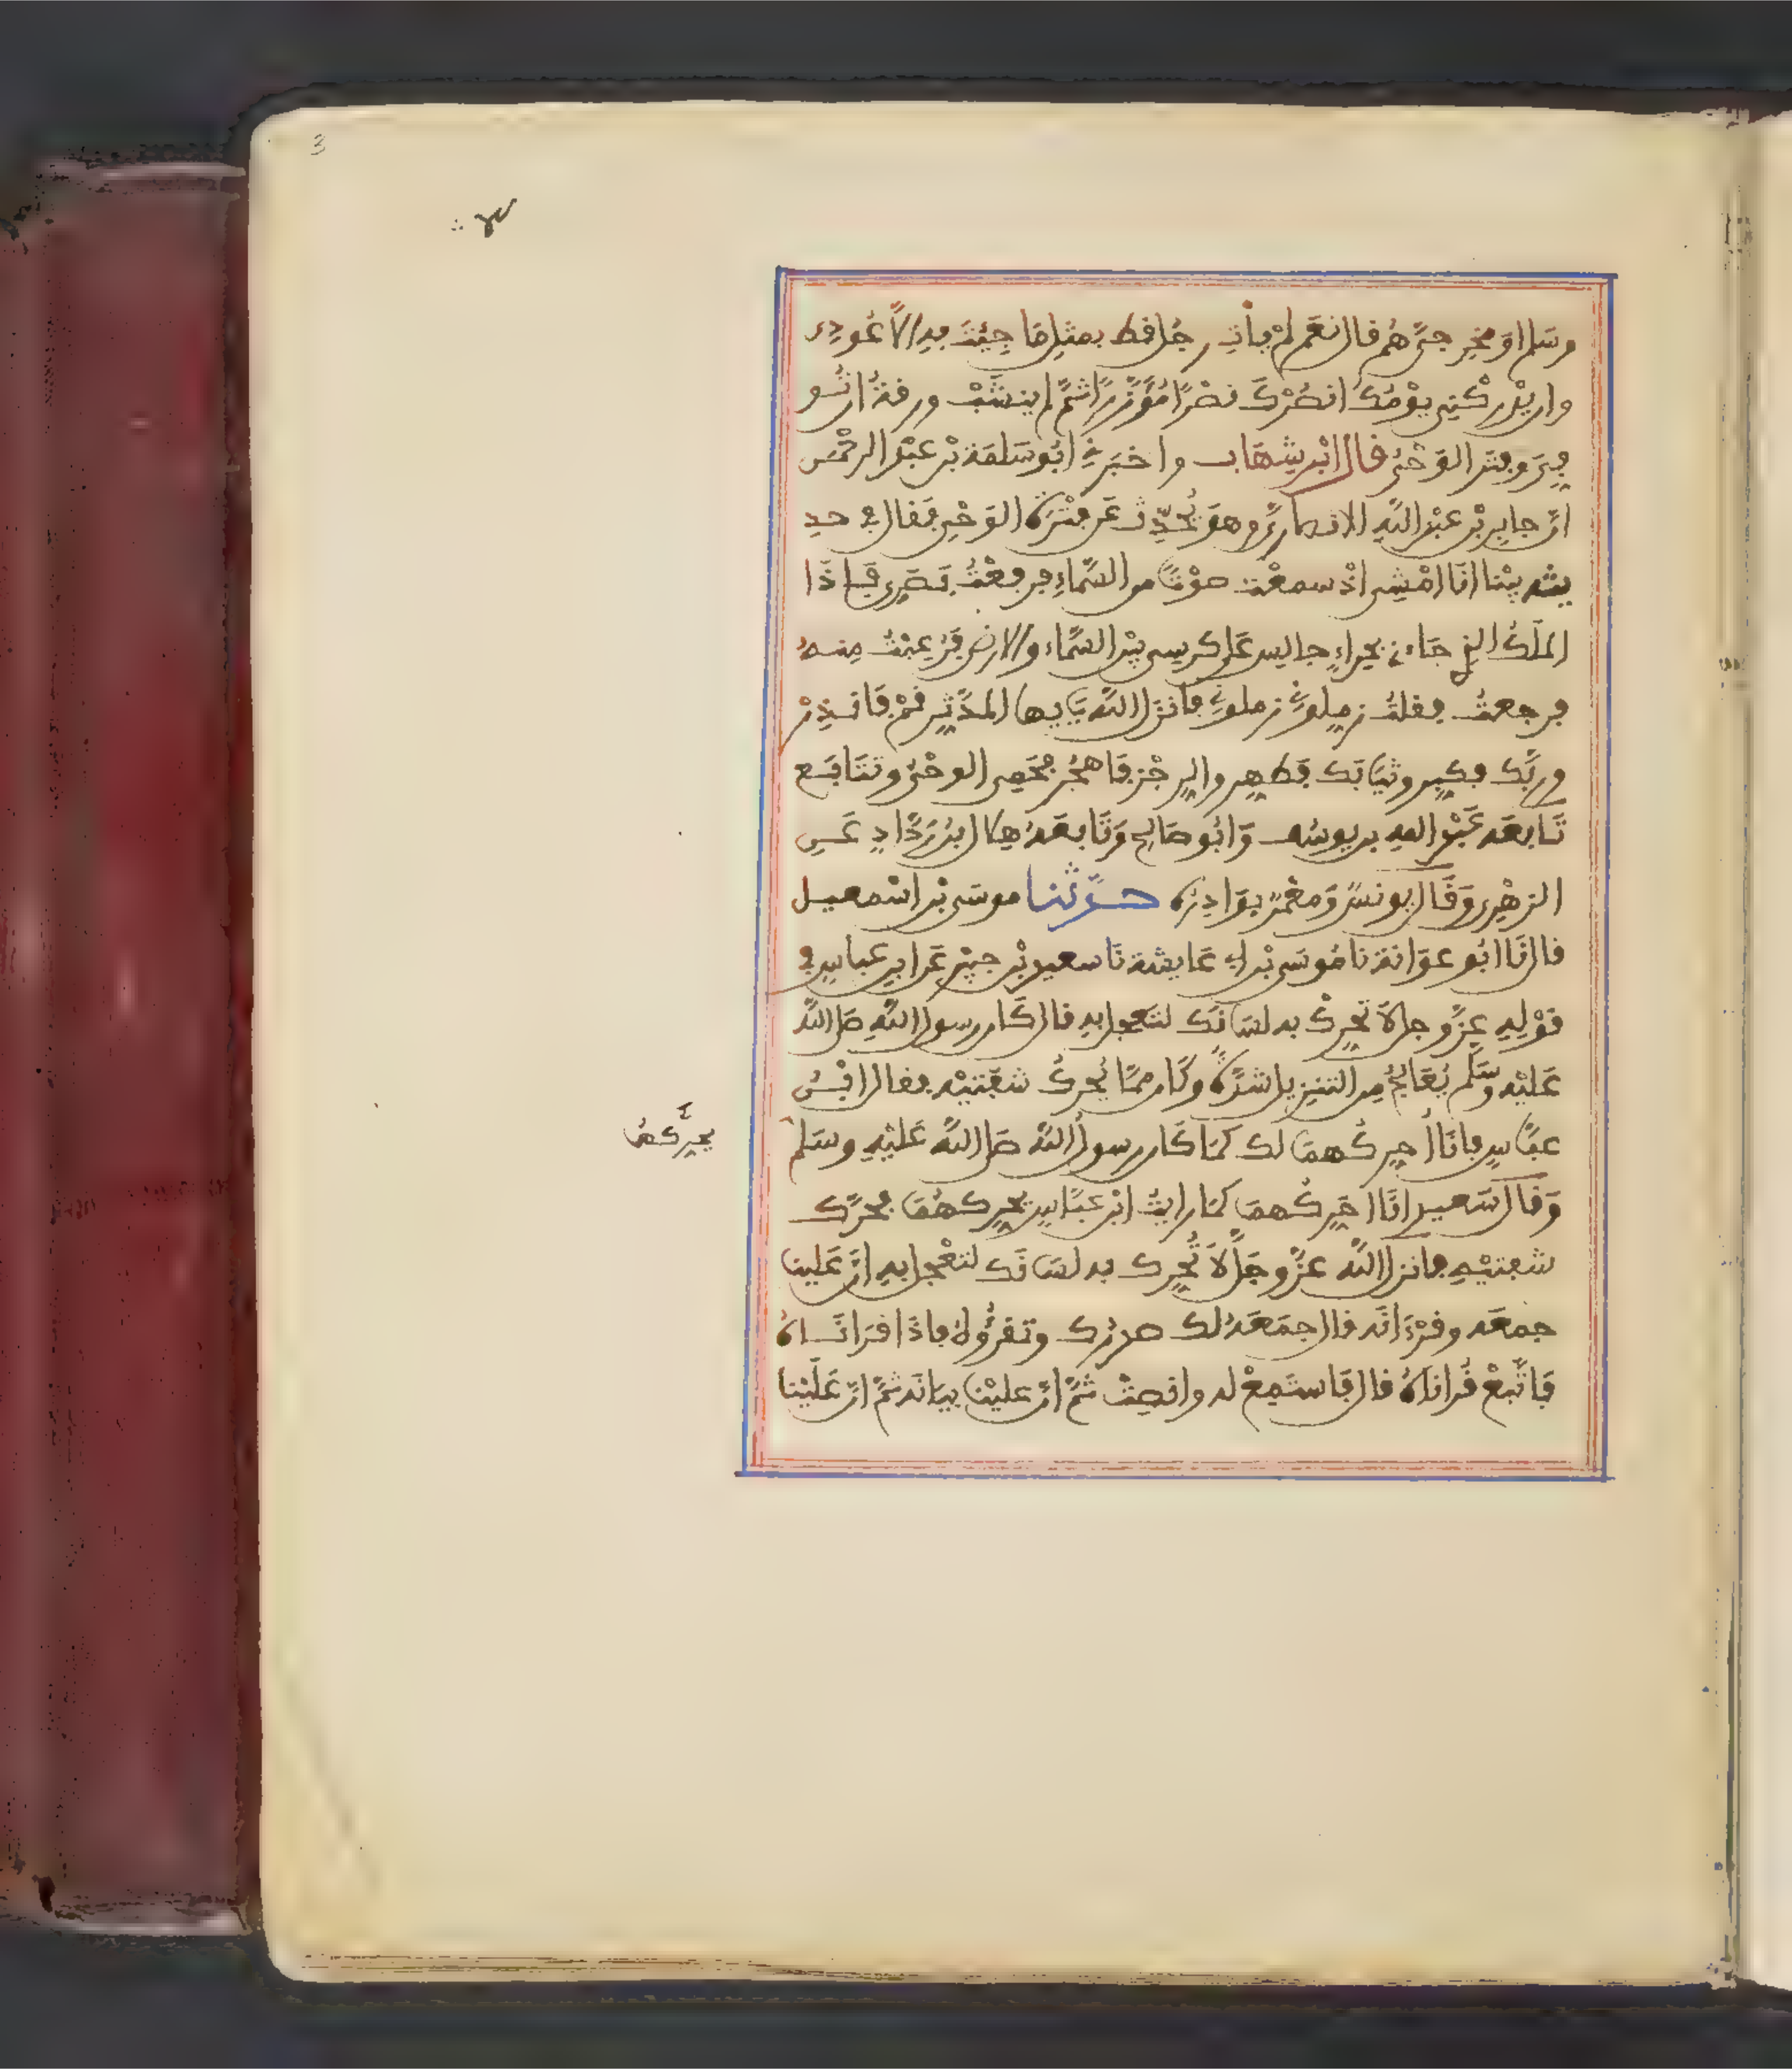 3
وسلم اوَمخرجيَّ هُم قال نعَم لم يأت رجُل قط بمثل مَا جِئتَ به الاَّ عُودِي
وان يدْركْنى يوْمُك انصُرْك نصْرًا مُؤَزَّرًا ثمَّ لم ينشَبْ ورقةُ ان تُو
فِىَ وفتر الوَحْىُ قال ابْن شهَاب واخبَرنى ابُو سَلمَة بْن عبْد الرحْمٰن
انَّ جابر بْن عبْد اللّه الانصاريَّ وهوَ يُحدِّث عَن فتْرَة الوَحْىِ فقال فى حدِ
يثه بيْنا انَا امْشِى اذْ سمعْت صوْتًا من السَّماءِ فرفعْتُ بَصَرِى فَاِذَا
الملَكُ الذى جَاءنى بحِراءٍ جالس عَلى كرسى بيْن السَّماء والارض فَرُعِبْتُ مِنهُ
فرجعتُ فقلتُ زمِلونِى زملونِى فانزل اللّه يَايها المدَّثِر قمْ فَانذِرْ
وربَّك فكبِر وثيَابَك فَطهِر والرجْزَ فَاهجُر فحَمِى الوحْىُ وتتَابَع
تَابعَه عَبْد الله بن يوسُف وَابُو صَالِح وَتَابعَهُ هِلال ابنُ رَدَّادٍ عَنِ
الزهْرِى وَقَال يونسُ وَمعْمَرٌ بوَادِرُه حدَّثنا موسَى بْن اسْمعيل
قال انَا ابُو عوَانة نا مُوسَى بْن ابى عَايشة نَا سعيد بْن جبيْر عَن ابن عباس فى
قوْلِهِ عزَّ وجل لاَ تحرِكْ به لسَانَك لتعجل به قال كَان رسول اللّهِ صَلى اللّه
عَليْه وسَلم يُعَالِجُ مِن التنزيل شدَّةً وكَان ممَّا يُحركُ شفَتيْه فقال ابْنُ
عبَّاسٍ فانَا أحرِكُهمَا لك كمَا كَان رسولُ اللّه صَلى اللّه عَليْهِ وسَلم
يحرِّكهُمَا
وَقَال سَعيد انَا احَرِكُهمَا كمَا رايتُ ابْن عبَّاسٍ يحرِكهُمَا فحرَّك
شفتيْهِ فانزل اللّه عزَّ وجَلَّ لاَ تُحرِك به لسَانَك لتعْجل به انَّ عَلينا
جمعَه وقرْءَانَه قال جمَعَهُ لك صدرُك وتقرَؤُهُ فاذَا قرَانَاهُ
فَاتَّبعْ قُرانَهُ قال فَاستَمِعْ له وانصِتْ ثمَّ انَّ عليْنا بيَانَه ثمَّ انَّ عَليْنا